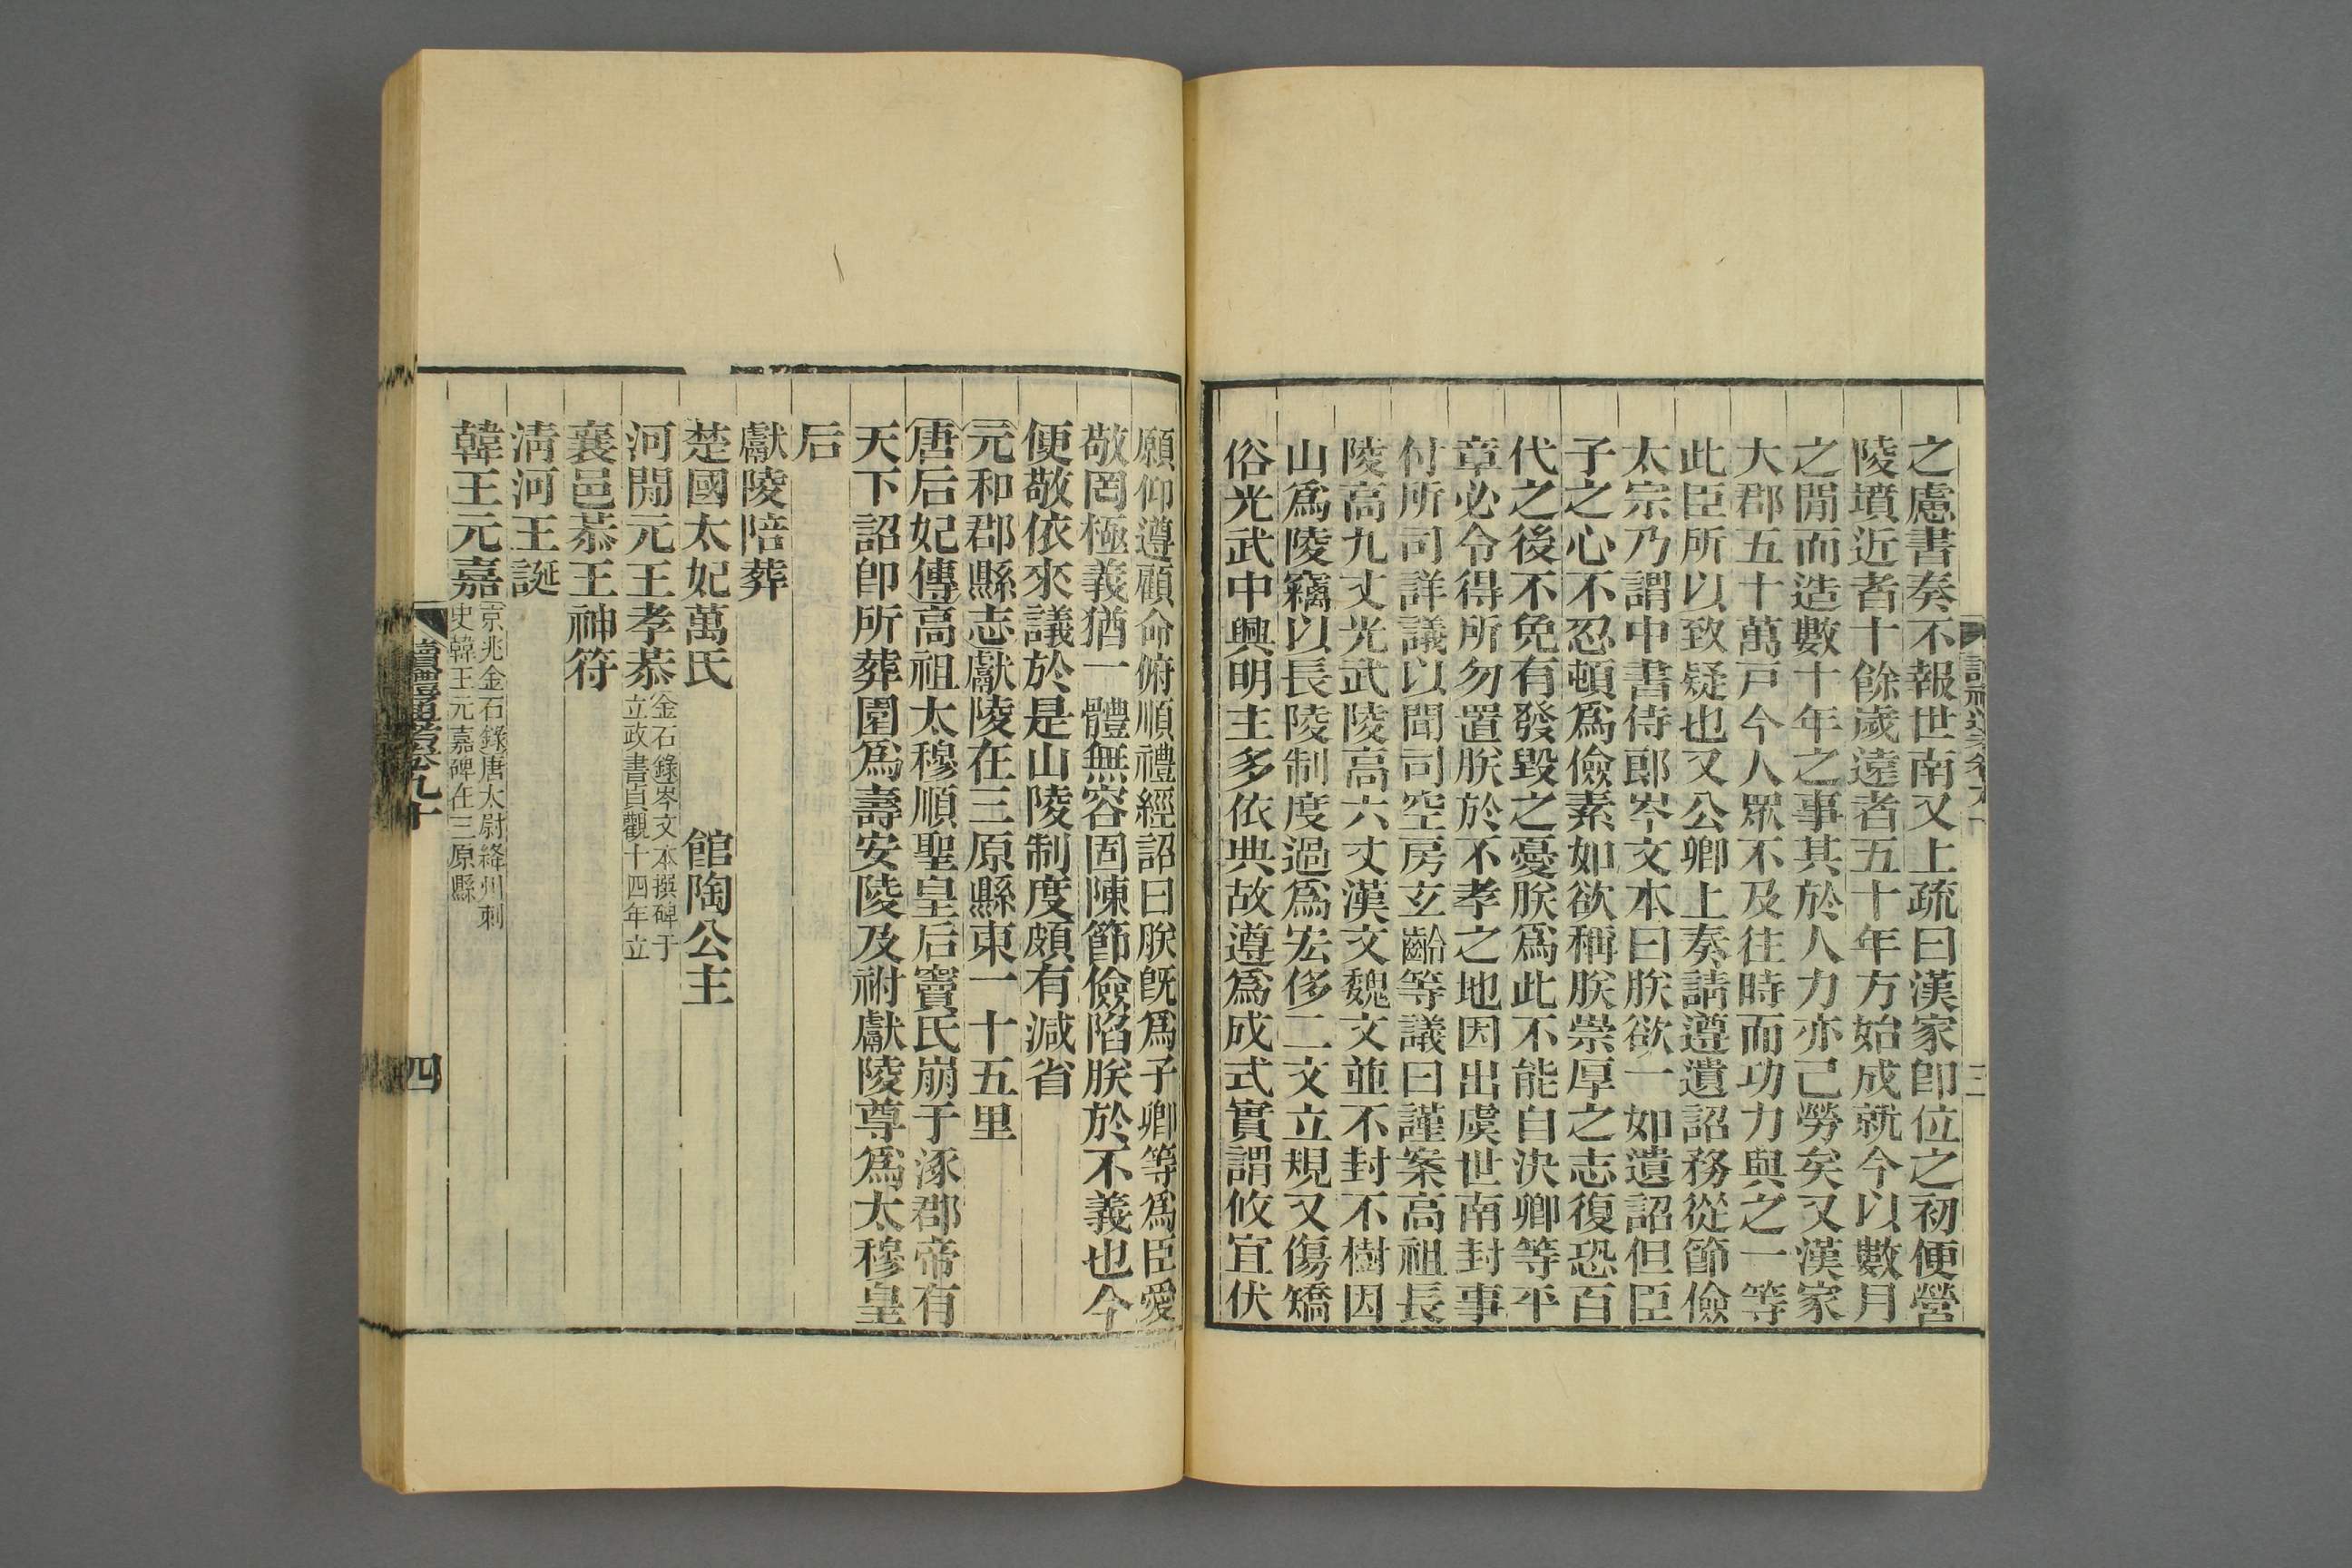 之慮書奏不報世南又上疏曰漢家卽位之初便營
陵墳近者十餘歲遠者五十年方始成就今以數月
之閒而造數十年之事其於人力亦已勞矣又漢家
大郡五十萬戸今人眾不及往時而功力與之一等
此臣所以致疑也又公卿上奏請遵遺詔務從節儉
太宗乃謂中書侍郎岑文本曰朕欲一如遺詔但臣
子之心不忍頓爲儉素如欲稱朕崇厚之志復恐百
代之後不免有發毀之憂朕爲此不能自決卿等平
章必令得所勿置朕於不孝之地因出虞世南封事
付所司詳議以聞司空房玄齡等議曰謹案高祖長
陵高九丈光武陵高六丈漢文魏文並不封不樹因
山爲陵竊以長陵制度過爲宏侈二文立規又傷矯
俗光武中興明主多依典故遵爲成式實謂攸宜伏
願仰遵顧命俯順禮經詔曰朕旣爲子卿等爲臣愛
敬罔極義猶一體無容固陳節儉陷朕於不義也今
便敬依來議於是山陵制度頗有減省
元和郡縣志獻陵在三原縣東一十五里
唐后妃傳高祖太穆順聖皇后竇氏崩于涿郡帝有
天下詔卽所葬園爲壽安陵及祔獻陵尊爲太穆皇
后
獻陵陪葬
楚國太妃萬氏 館陶公主
河閒元王孝恭 金石錄岑文本撰碑于
立政書貞觀十四年立
襄邑恭王神符
淸河王誕
韓王元嘉 京兆金石錄唐太尉絳州刺
史韓王元嘉碑在三原縣
讀禮通考卷九十
四